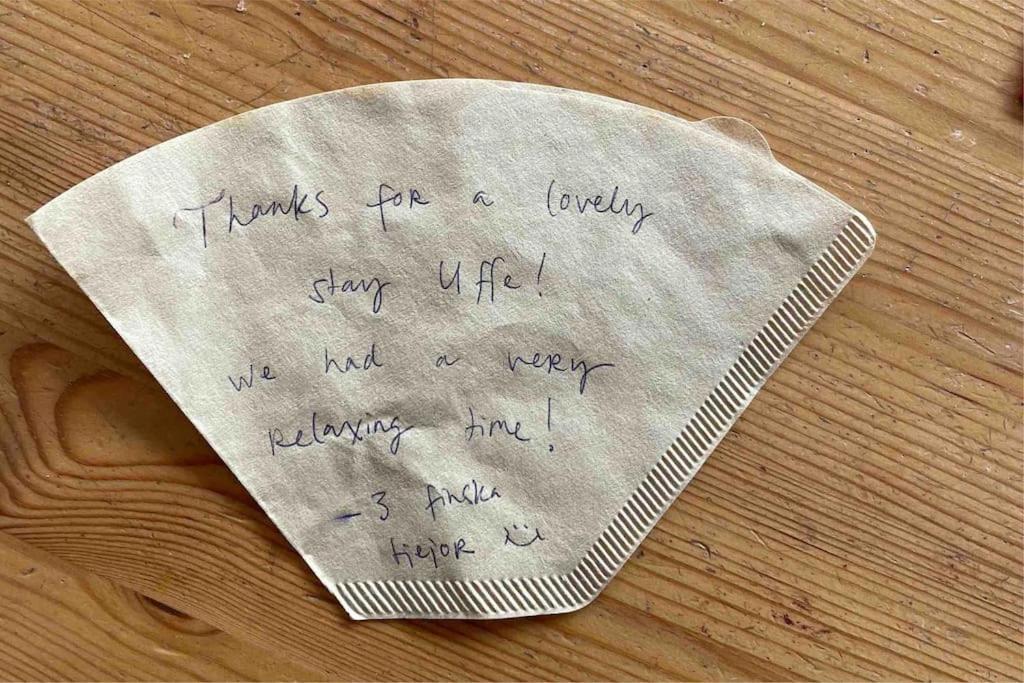 Thanks for a lovely
stay Uffe!
we had a very
relaxing time!
- 3 finska
tjejor :)